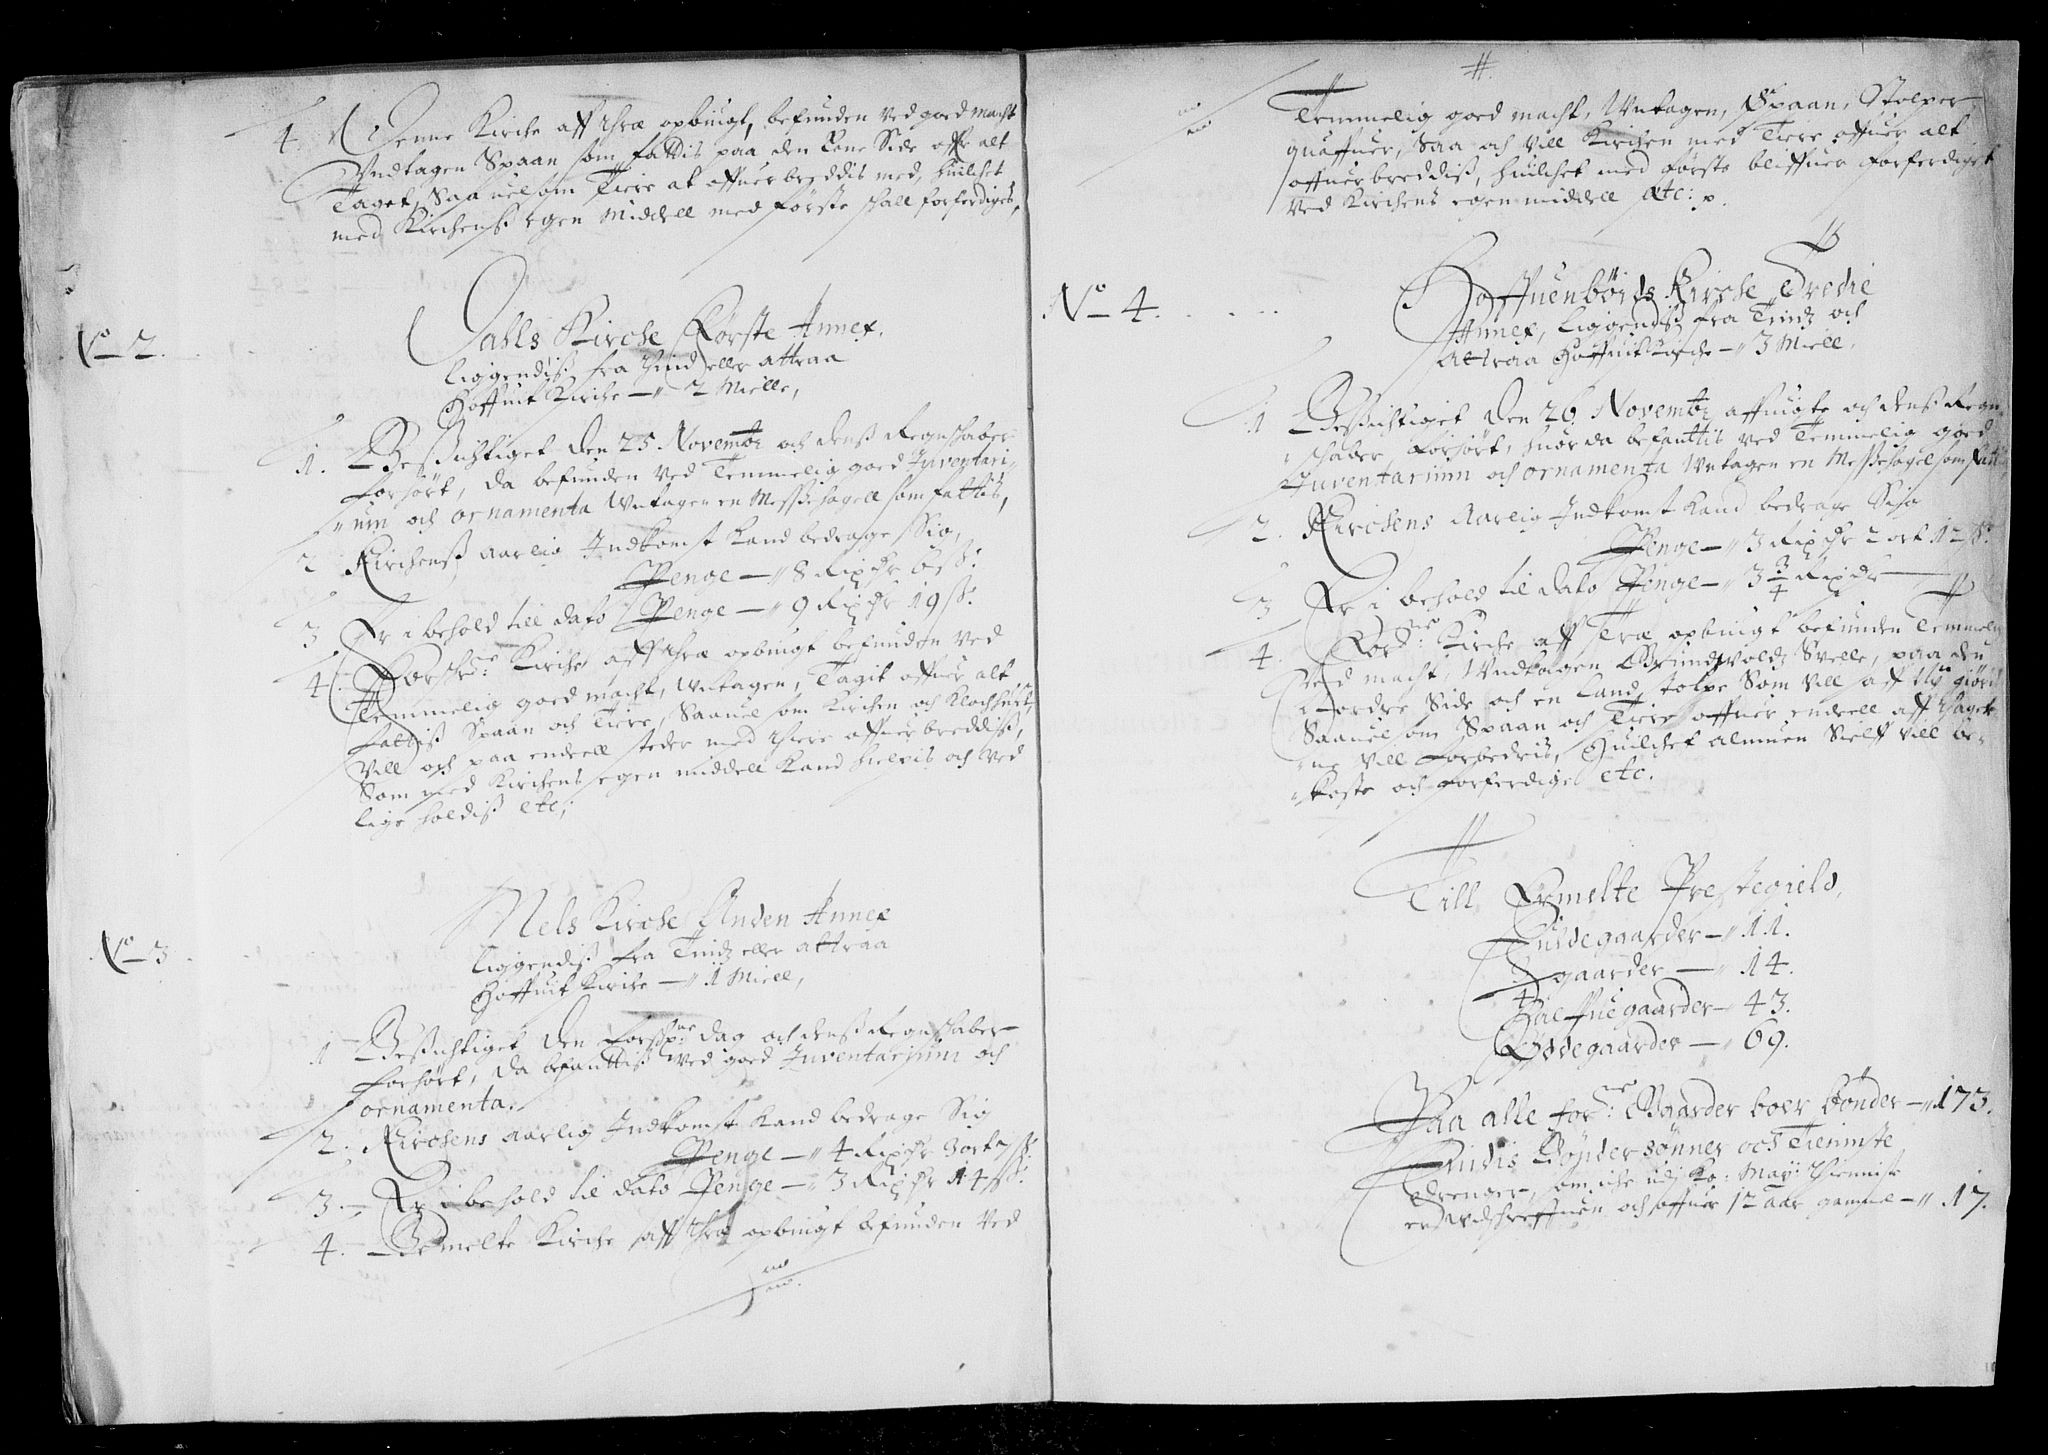 4. Denne Kirche aff Thræ opbuigt, befunden ved goed macht
Vndtagen Spaan som fattis paa den Eene Side offr alt
Taget, Saauelsom Tiere at offuerbreddis med, huilchet
med Kirchens Egen Middell med første schall forferdiges,
No 2.
Dahls Kirche Første Annex.
liggendiß fra Tind eller attraa
Hoffuit Kirche — 2 Mielle,
1. Besichtiget den 25. Novembr och denß Regnschaber
forhört, da befunden ved Temmelig goed Inventari-
um och ornamenta Vntagen en Messehagell som fattis,
2 Kirchenß aarlig Indkomst kand bedrage Sig,
Penge — 8 Rixdr 6 ß:
3 Er i behold till dato Penge — 9 Rixdr 19 ß.
4. Forschr:ne Kirche aff Thræ opbuigt befunden ved
Temmelig goed macht, Vntagen, Taget offuer alt
fattiß Spaan och Tiere, Saauel som Kirchen och Klochhuset,
Vill och paa endeell steder med Thiere offuerbreddiß,
Som med Kirchens egen middell kand hielpis och ved
lige holdiß etc;
No 3
Mels Kirche Anden Annex
liggendiß fra Tind eller attraa
Hoffuit Kirche — 1 Miell,
1 Besichtiget den forschr:ne dag och denß Regnschaber
forhört, da befanttiß ved goed Inventarium och
ornamenta.
2. Kirchens aarlig Indkomst kand bedrage Sig
Penge — 4 Rixdr 3 ort 7 ß:
3. Er i behold til dato Penge — 3 Rixdr 14 ß:
4. Bemelte Kirche aff Thræ opbuigt befunden ved
Temmelig goed macht, Vntagen, Spaan, Stolper
quaffuer, Saa och vill Kirchen med Tiere offuer alt
offuerbreddiß, huilchet med første bliffuer forferdiget
ved Kirchens egen middell etc: p.
No 4.
Hoffuenbøigds Kirche Tredie
Annex, liggendiß fra Tindz och
Attraa Hoffuit Kirche — 3 Miell,
1 Besichtiget den 26 Novembr affuigte och denß Regn-
schaber forhört, huor da befanttis ved Temmelig goed
Inventarium och ornamenta Vntagen en Messehagel som fatt
2. Kirchens Aarlig Indkomst kand bedrage Sich
Penge — 3 Rixdr 2 ort 12 ß:
3 Er i behold til dato Penge — 3 3/4 Rixdr
4. For:ne Kirche aff Træ opbuigt befunden Temmelig
ved macht, Vndtagen Grundvoldz Svelle, paa den
nordre Side och en land stolpe Som vill aff Ny giöris
Saauel som Spaan och Tiere offuer endeell aff Thaget
vill forbedris, Huilchet almuen Sielff vill be-
koste och forferdige etc.
Till Ermelte Prestegield,
Fuldegaarder — 11.
3/4 gaarder — 14.
Halffuegaarder — 43.
Ødegaarder — 69.
Paa alle for:ne Gaarder boer bönder — 173.
Findis Bøndersønner och Tieniste
drenger, som iche udj Ko: May: Thienniste
er Vdschreffuen och offuer 12 aar gamle — 17.